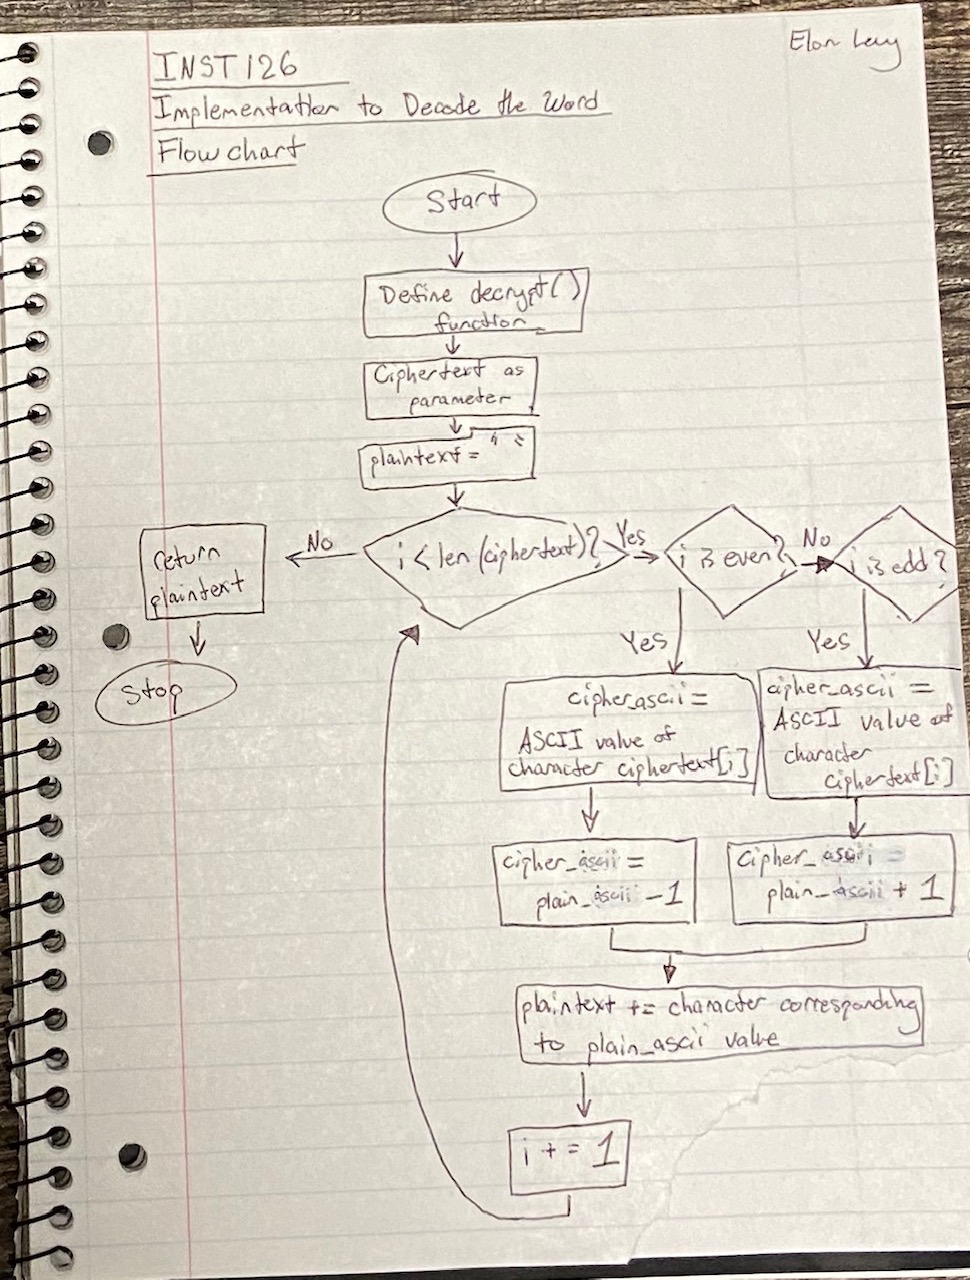 Elon Levy
INST126
Implementation to Decode the Word
Flow chart
Start
Define decrypt()
function
Ciphertext as
parameter
plaintext = " "
i < len(ciphertext)?
No
return
plaintext
Stop
Yes
i is even?
No
i is odd?
Yes
cipher_ascii =
ASCII value of
character ciphertext[i]
cipher_ascii =
plain_ascii - 1
Yes
cipher_ascii =
ASCII value of
character
ciphertext[i]
cipher_ascii =
plain_ascii + 1
plaintext += character corresponding
to plain_ascii value
i += 1